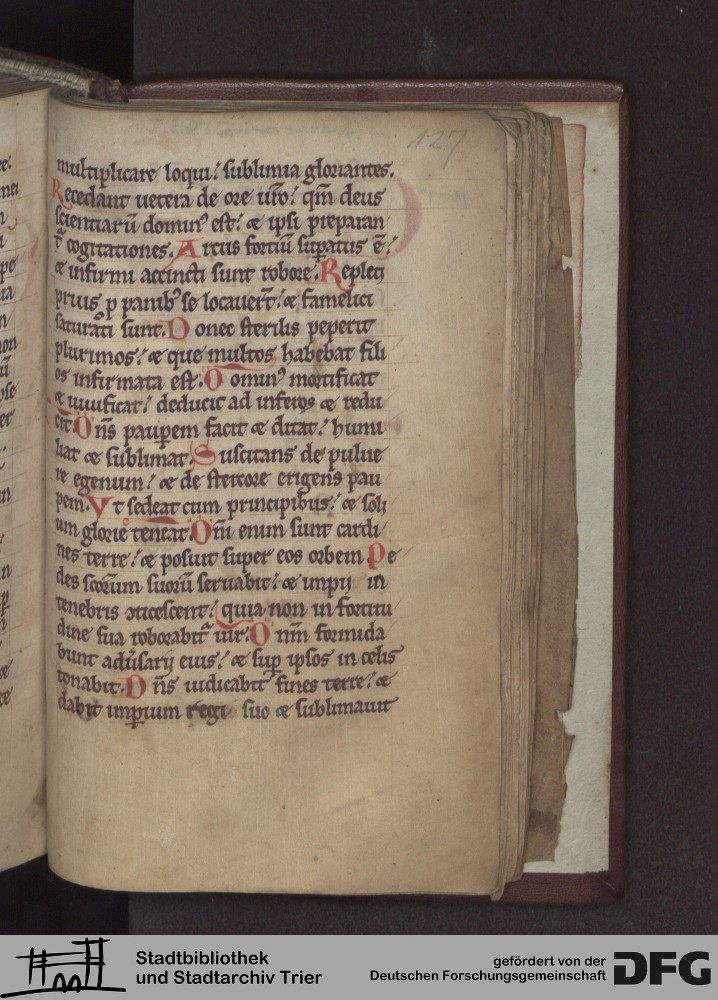 127
multiplicare loqui! sublimia gloriantes.
Recedant uetera de ore ur̄o! qm̄ deus
scientiarū dominꝰ est! ⁊ ipsi preparan
t᷑ cogitationes. Arcus fortiū suꝑatus ē!
⁊ infirmi accincti sunt robore. Repleti
prius ꝓ panibꝰ se locauer̄t! ⁊ famelici
saturati sunt. Donec sterilis peperit
plurimos! ⁊ que multos habebat fili
os infirmata est. Dominꝰ mortificat
⁊ uiuificat! deducit ad inferos ⁊ redu
cit. Dn̄s pauꝑem facit ⁊ ditat! humi
liat ⁊ sublimat. Suscitans de pulue
re egenum! ⁊ de stercore erigens pau
pem. Vt sedeat cum principibus! ⁊ soli
um glorie teneat. Dn̄i enim sunt cardi
nes terre! ⁊ posuit super eos orbem. Pe
des scōrum suorū seruabit! ⁊ impij in
tenebris ↄticescent! quia non in fortitu
dine sua roborabit᷑ uir. Dn̄m formida
bunt adūsarij eius! ⁊ suꝑ ipsos in celis
tonabit. Dn̄s iudicabit fines terre! ⁊
dabit imꝑium regi suo ⁊ sublimauit
Stadtbibliothek
und Stadtarchiv Trier
gefördert von der
Deutschen Forschungsgemeinschaft
DFG